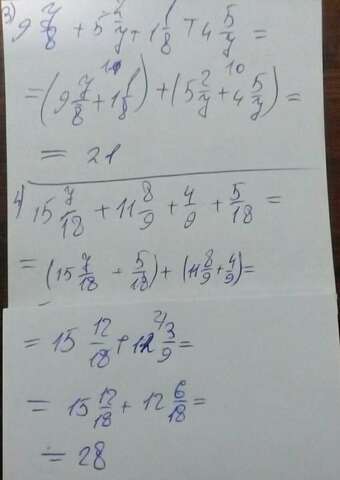 3) 9 7/8 + 5 2/7 + 1 1/8 + 4 5/7 =
= (9 7/8 + 1 1/8) + (5 2/7 + 4 5/7) =
= 21
4) 15 7/18 + 11 8/9 + 4/9 + 5/18 =
= (15 7/18 + 5/18) + (11 8/9 + 4/9) =
= 15 12/18 + 12 3/9 =
= 15 12/18 + 12 6/18 =
= 28